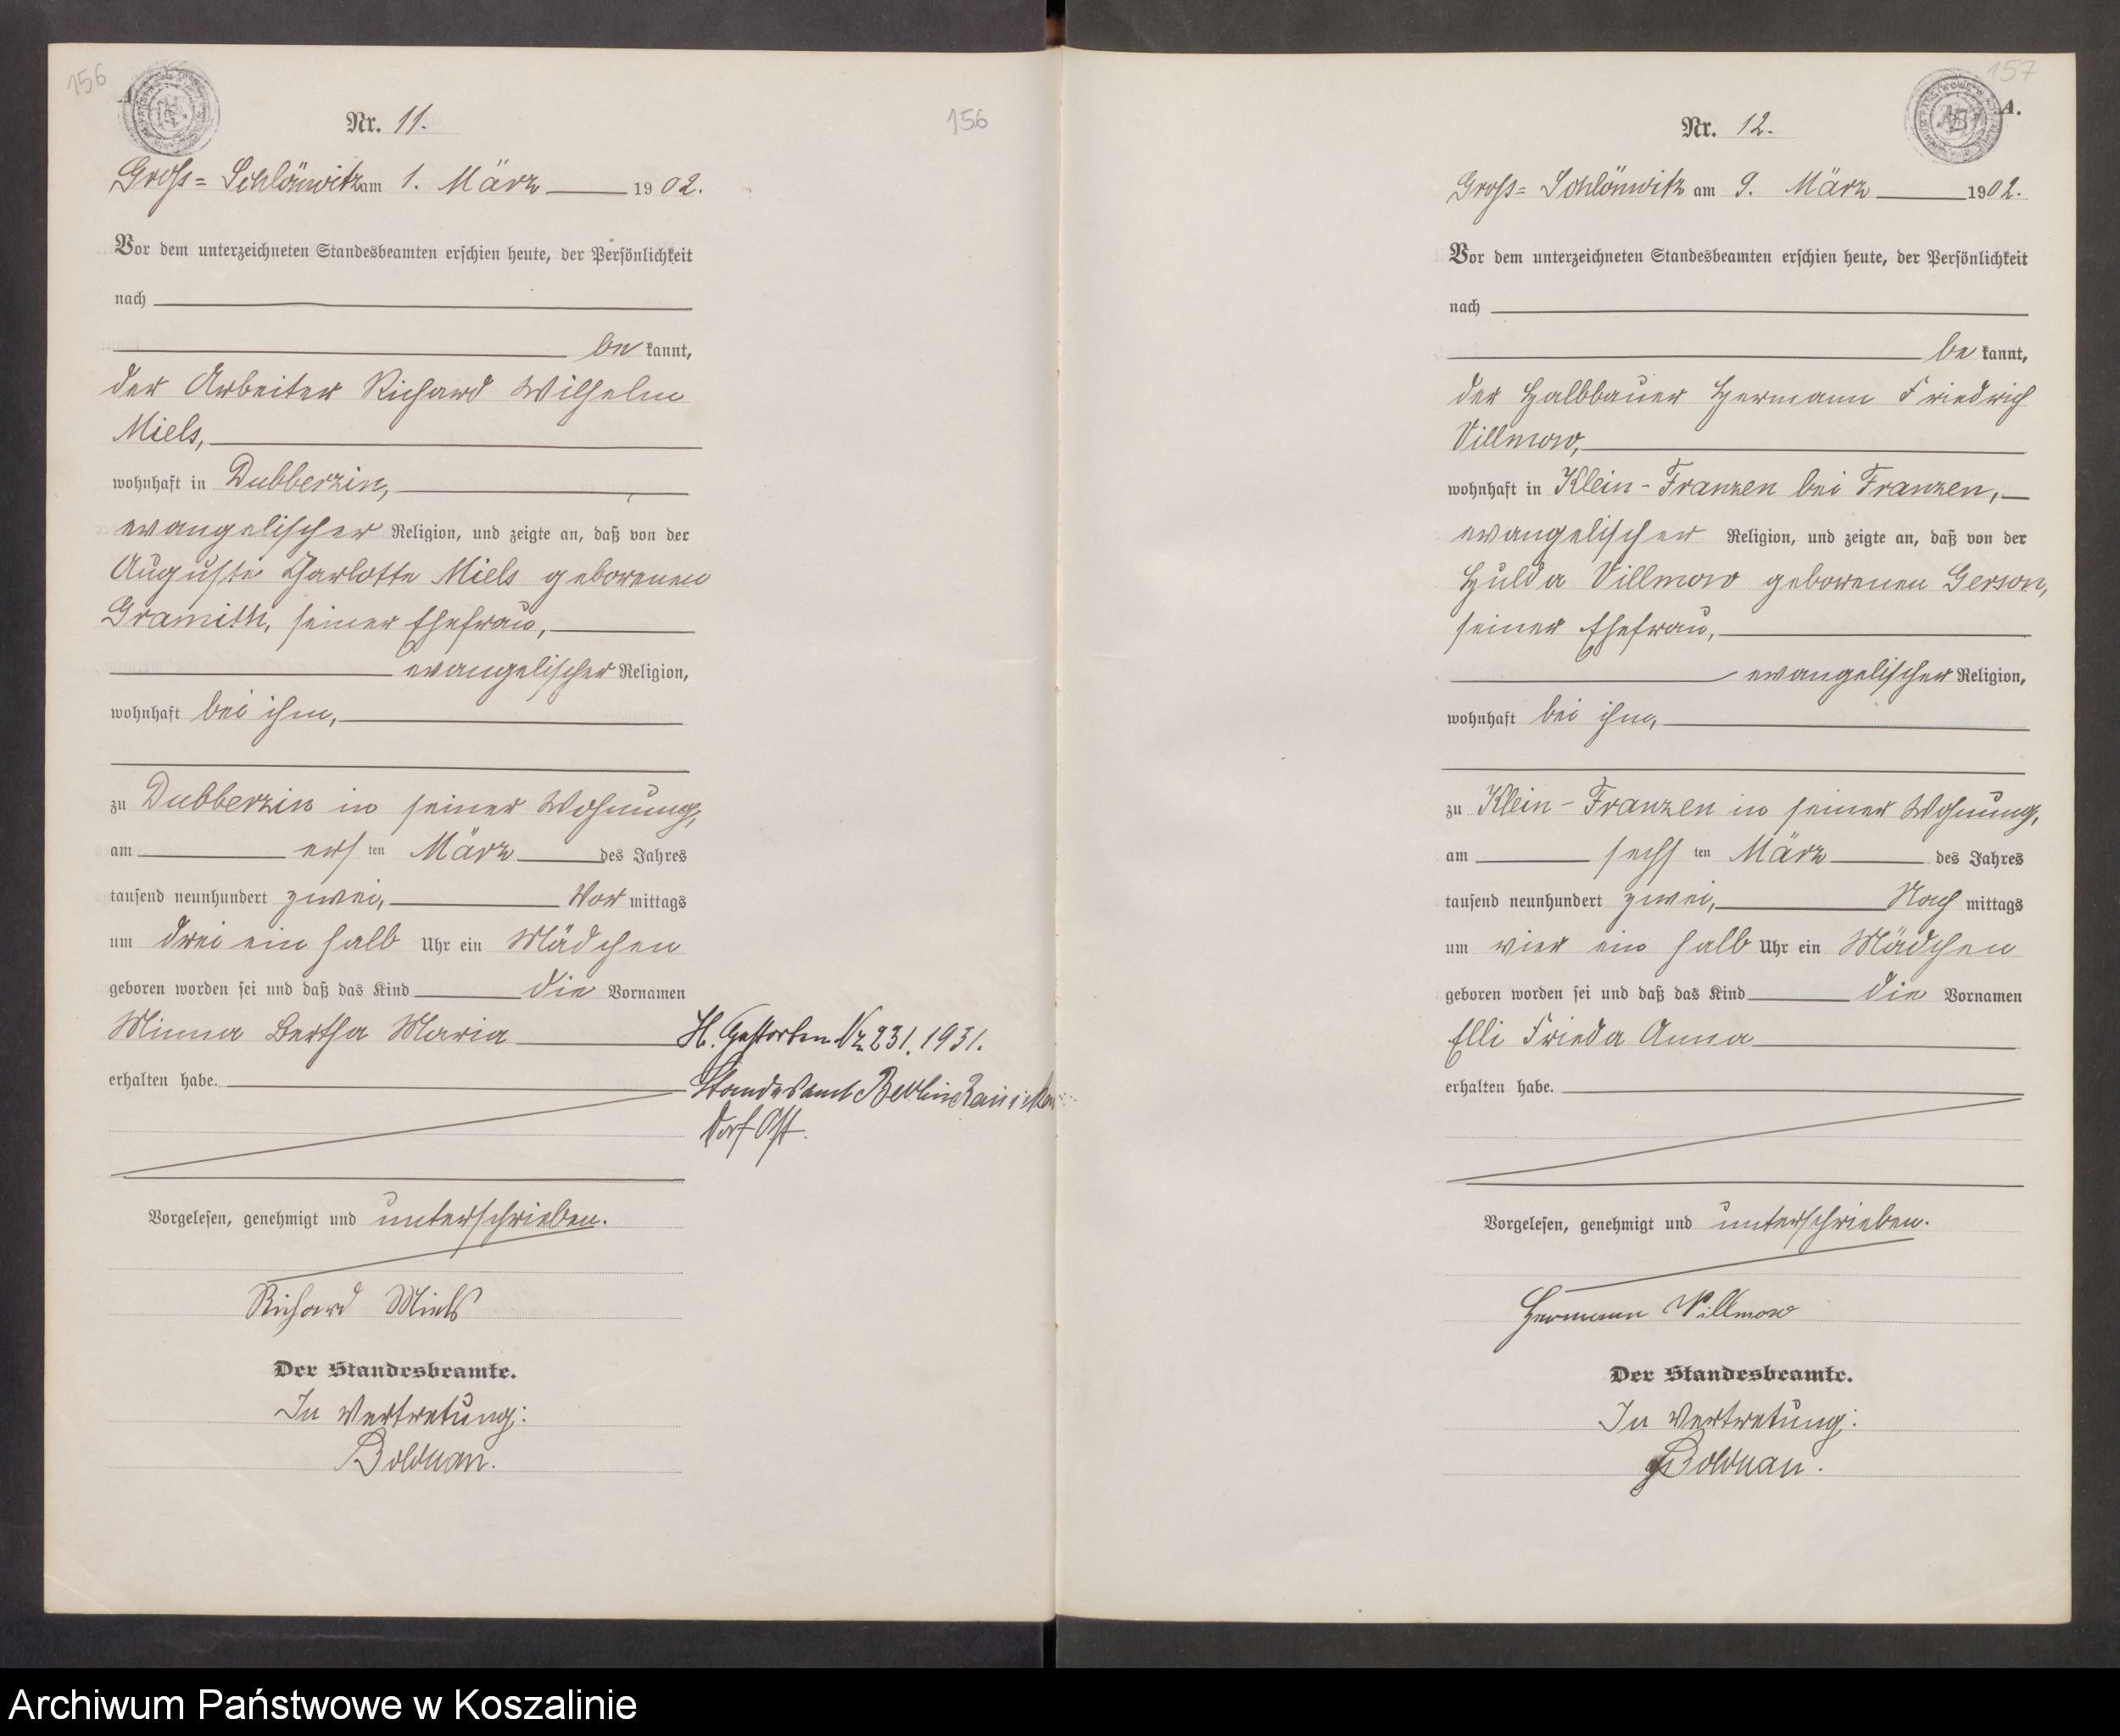 156
Nr. 11.
Groß-Schlönwitz am 1. März 1902.
Vor dem unterzeichneten Standesbeamten erschien heute, der Persönlichkeit
nach
be kannt,
der Arbeiter Richard Wilhelm
Miels,
wohnhaft in Dubberzin,
evangelischer Religion, und zeigte an, daß von der
Auguste Charlotte Miels geborenen
Gramith, seiner Ehefrau,
evangelischer Religion,
wohnhaft bei ihm,
zu Dubberzin in seiner Wohnung,
am ersten März des Jahres
tausend neunhundert zwei, Vor mittags
um drei ein halb Uhr ein Mädchen
geboren worden sei und daß das Kind die Vornamen
Minna Bertha Maria
erhalten habe.
Vorgelesen, genehmigt und unterschrieben.
Richard Miels
Der Standesbeamte.
In Vertretung:
Bolduan.
156
H. Gestorben Nr. 231. 1931.
Standesamt Berlin Reinicken
dorf Ost.
157
A.
Nr. 12.
Groß-Schlönwitz am 9. März 1902.
Vor dem unterzeichneten Standesbeamten erschien heute, der Persönlichkeit
nach
be kannt,
der Halbbauer Hermann Friedrich
Villmow,
wohnhaft in Klein-Franzen bei Franzen,
evangelischer Religion, und zeigte an, daß von der
Hulda Villmow geborenen Gerson,
seiner Ehefrau,
evangelischer Religion,
wohnhaft bei ihm,
zu Klein-Franzen in seiner Wohnung,
am sechsten März des Jahres
tausend neunhundert zwei, Nach mittags
um vier ein halb Uhr ein Mädchen
geboren worden sei und daß das Kind die Vornamen
Elli Frieda Anna
erhalten habe.
Vorgelesen, genehmigt und unterschrieben.
Hermann Villmow
Der Standesbeamte.
In Vertretung:
Bolduan.
Archiwum Państwowe w Koszalinie